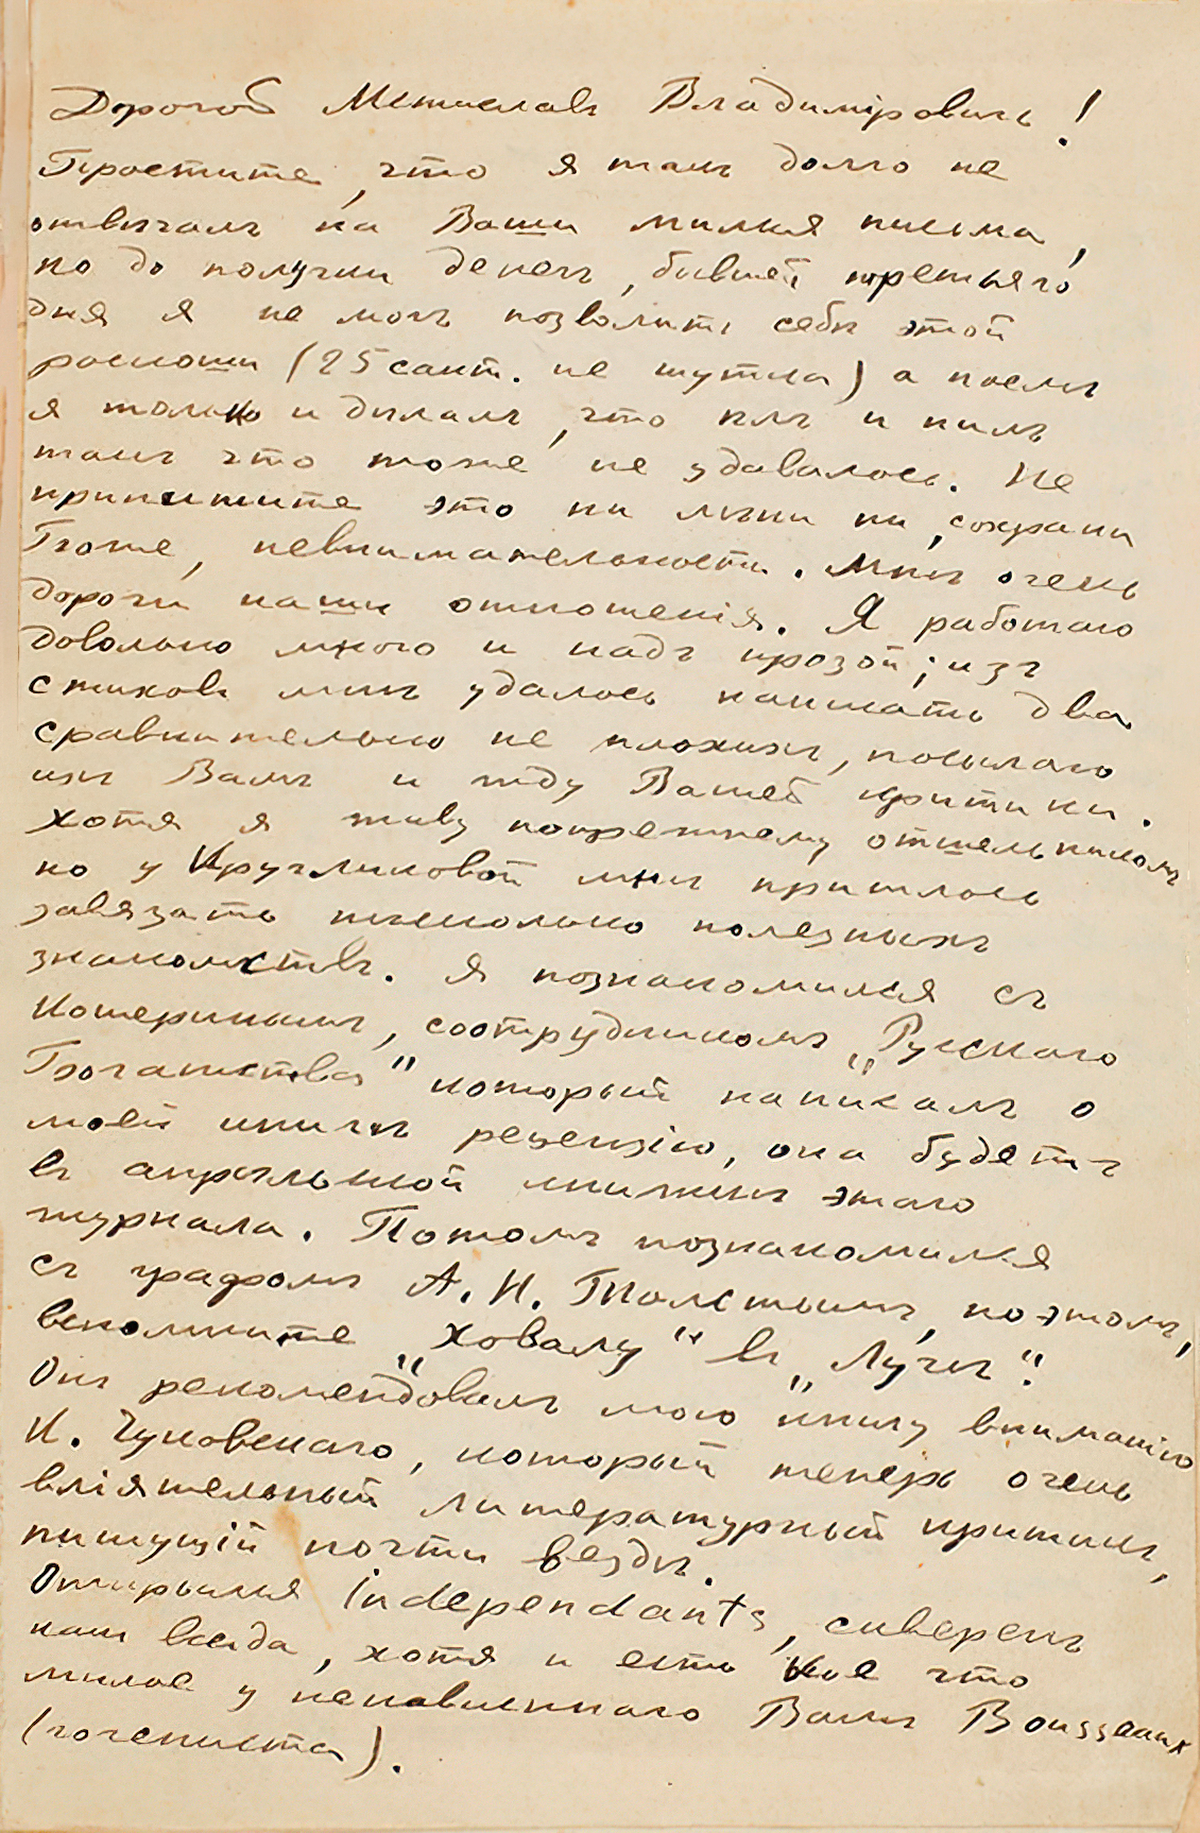 Дорогой Мстиславъ Владимiровичъ!
Простите, что я такъ долго не
отвѣчалъ на Ваши милыя письма,
но до получки денегъ, бывшей третьяго
дня я не могъ позволить себѣ этой
роскоши (25 сант. не шутка) а послѣ
я только и дѣлалъ, что ѣлъ и пилъ
такъ что тоже не удавалось. Не
припишите это ни лѣни ни, сохрани
Боже, невнимательности. Мнѣ очень
дороги наши отношенiя. Я работаю
довольно много и надъ прозой; изъ
стиховъ мнѣ удалось написать два
сравнительно не плохихъ, посылаю
ихъ Вамъ и жду Вашей критики.
Хотя я живу попрежнему отшельникомъ
но у Кругликовой мнѣ пришлось
завязать нѣсколько полезныхъ
знакомствъ. Я познакомился съ
Кошеринымъ, сотрудникомъ „Русскаго
Богатства" который написалъ о
моей книгѣ рецензiю, она будетъ
въ апрѣльской книжкѣ этаго
журнала. Потомъ познакомился
съ графомъ А. Н. Толстымъ, поэтомъ,
вспомните „Ховалу" въ „Лучѣ".
Онъ рекомендовалъ мою книгу вниманiю
К. Чуковскаго, который теперь очень
влiятельный литературный критикъ,
пишущiй почти вездѣ.
Открылся independants, скверенъ
какъ всегда, хотя и есть кое что
милое у ненавистнаго Вамъ Rousseaux
(гогениста).